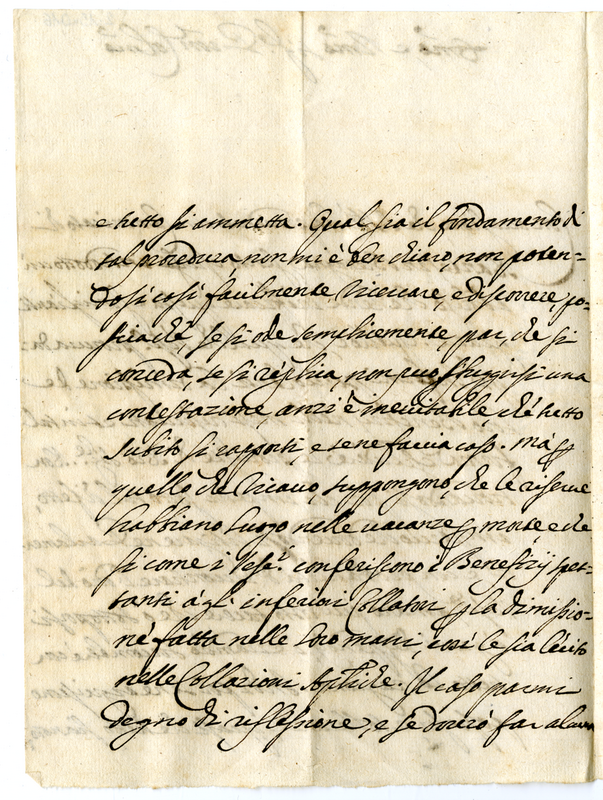 e tutto si ammetta. Qual sia il fondamento di
tal procedura, non mi è ben chiaro, non poten-
dosi così facilmente ricercare, e discorrere, po-
sciachè, se si ode semplicemente par, che si
conceda, se si replica, non può sfuggirsi una
contestazione, anzi è inevitabile, che tutto
subito si rapporti, e se ne faccia caso. Ma p
quello che ricavo, suppongono, che le riserve
habbiano luogo nelle vacanze p morte, e che
si come i Vescⁱ conferiscono i Benefizij spet-
tanti à gl' inferiori Collatori p la dimissio-
ne fatta nelle loro mani, così le sia lecito
nelle Collazioni Aplic̃he. Il caso parmi
degno di riflessione, e se dovrò far alcun